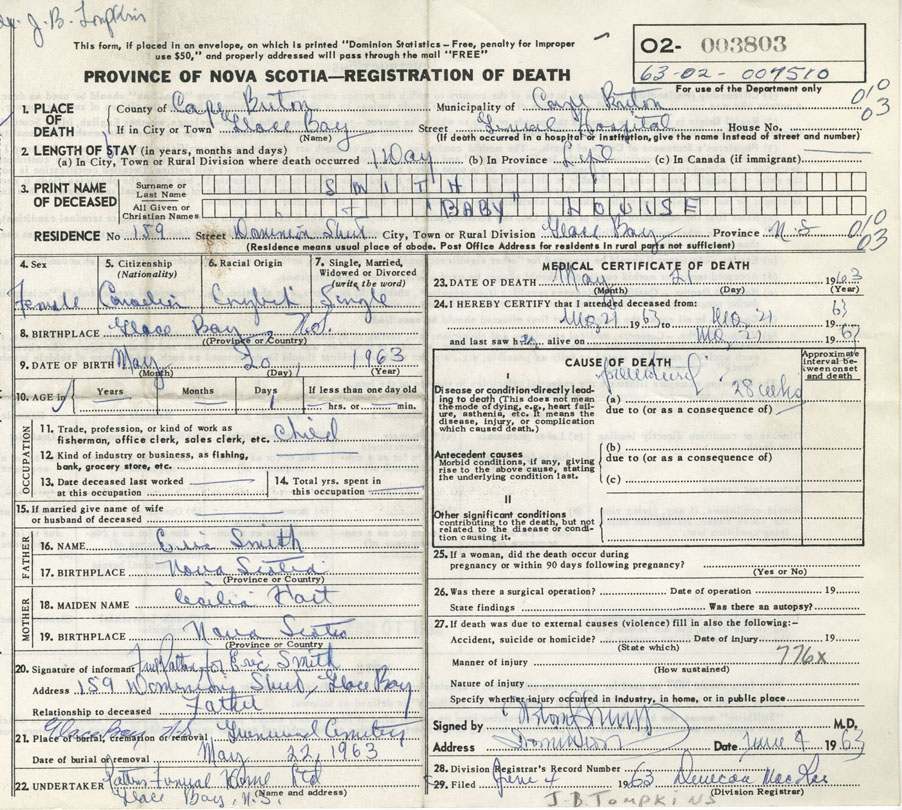 Dr. J. B. Tompkins
This form, if placed in an envelope, on which is printed "Dominion Statistics - Free, penalty for improper
use $50," and properly addressed will pass through the mail "FREE"
02- 003803
63-02-009510
For use of the Department only
PROVINCE OF NOVA SCOTIA—REGISTRATION OF DEATH
010
03
1. PLACE OF DEATH
County of Cape Breton Municipality of Cape Breton
If in City or Town Glace Bay Street General Hospital House No.
(Name) (If death occurred in a hospital or institution, give the name instead of street and number)
2. LENGTH OF STAY (in years, months and days)
(a) In City, Town or Rural Division where death occurred 1 Day (b) In Province Life (c) In Canada (if immigrant)
3. PRINT NAME OF DECEASED
Surname or Last Name SMITH
All Given or Christian Names "BABY" LOUISE
RESIDENCE No 159 Street Dominion Street City, Town or Rural Division Glace Bay Province N.S
010
03
(Residence means usual place of abode. Post Office Address for residents in rural parts not sufficient)
4. Sex Female
5. Citizenship (Nationality) Canadian
6. Racial Origin English
7. Single, Married, Widowed or Divorced (write the word) Single
8. BIRTHPLACE Glace Bay, N.S.
(Province or Country)
9. DATE OF BIRTH May 20 1963
(Month) (Day) (Year)
10. AGE in Years Months Days 1 If less than one day old
hrs. or min.
OCCUPATION
11. Trade, profession, or kind of work as
fisherman, office clerk, sales clerk, etc. Child
12. Kind of industry or business, as fishing,
bank, grocery store, etc.
13. Date deceased last worked
at this occupation
14. Total yrs. spent in
this occupation
15. If married give name of wife
or husband of deceased
FATHER
16. NAME Eric Smith
17. BIRTHPLACE Nova Scotia
(Province or Country)
MOTHER
18. MAIDEN NAME Cecilia Hart
19. BIRTHPLACE Nova Scotia
(Province or Country)
20. Signature of informant for Eric Smith
Address 159 Dominion Street, Glace Bay
Relationship to deceased Father
21. Place of burial, cremation or removal Glace Bay N.S. Greenwood Cemetery
Date of burial or removal May 22, 1963
22. UNDERTAKER Funeral Home Ltd
(Name and address)
Glace Bay, N.S.
MEDICAL CERTIFICATE OF DEATH
23. DATE OF DEATH May 21 1963
(Month) (Day) (Year)
24. I HEREBY CERTIFY that I attended deceased from:
May 21 1963 to May 21 1963
and last saw her alive on May 21 1963
CAUSE OF DEATH
Approximate interval between onset and death
I
Disease or condition directly leading to death (This does not mean the mode of dying, e.g., heart failure, asthenia, etc. It means the disease, injury, or complication which caused death.)
(a) Prematurity 28 weeks
due to (or as a consequence of)
Antecedent causes
Morbid conditions, if any, giving rise to the above cause, stating the underlying condition last.
(b)
due to (or as a consequence of)
(c)
II
Other significant conditions
contributing to the death, but not related to the disease or condition causing it.
25. If a woman, did the death occur during
pregnancy or within 90 days following pregnancy?
(Yes or No)
26. Was there a surgical operation? Date of operation 19
State findings Was there an autopsy?
27. If death was due to external causes (violence) fill in also the following:-
Accident, suicide or homicide? Date of injury 19
(State which)
776x
Manner of injury
(How sustained)
Nature of injury
Specify whether injury occurred in industry, in home, or in public place
Signed by M.D,
Address Dominion Date June 4 1963
28. Division Registrar's Record Number
29. Filed June 4 1963
(Division Registrar)
J.B.TOMPKINS